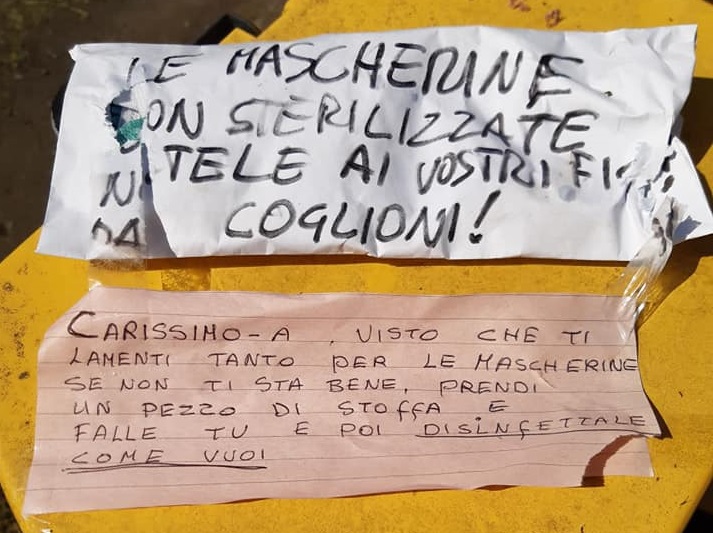 LE MASCHERINE
STERILIZZATE
AI VOSTRI
COGLIONI!
CARISSIMO-A, VISTO CHE TI
LAMENTI TANTO PER LE MASCHERINE
SE NON TI STA BENE, PRENDI
UN PEZZO DI STOFFA E
FALLE TU E POI DISINFETTALE
COME VUOI